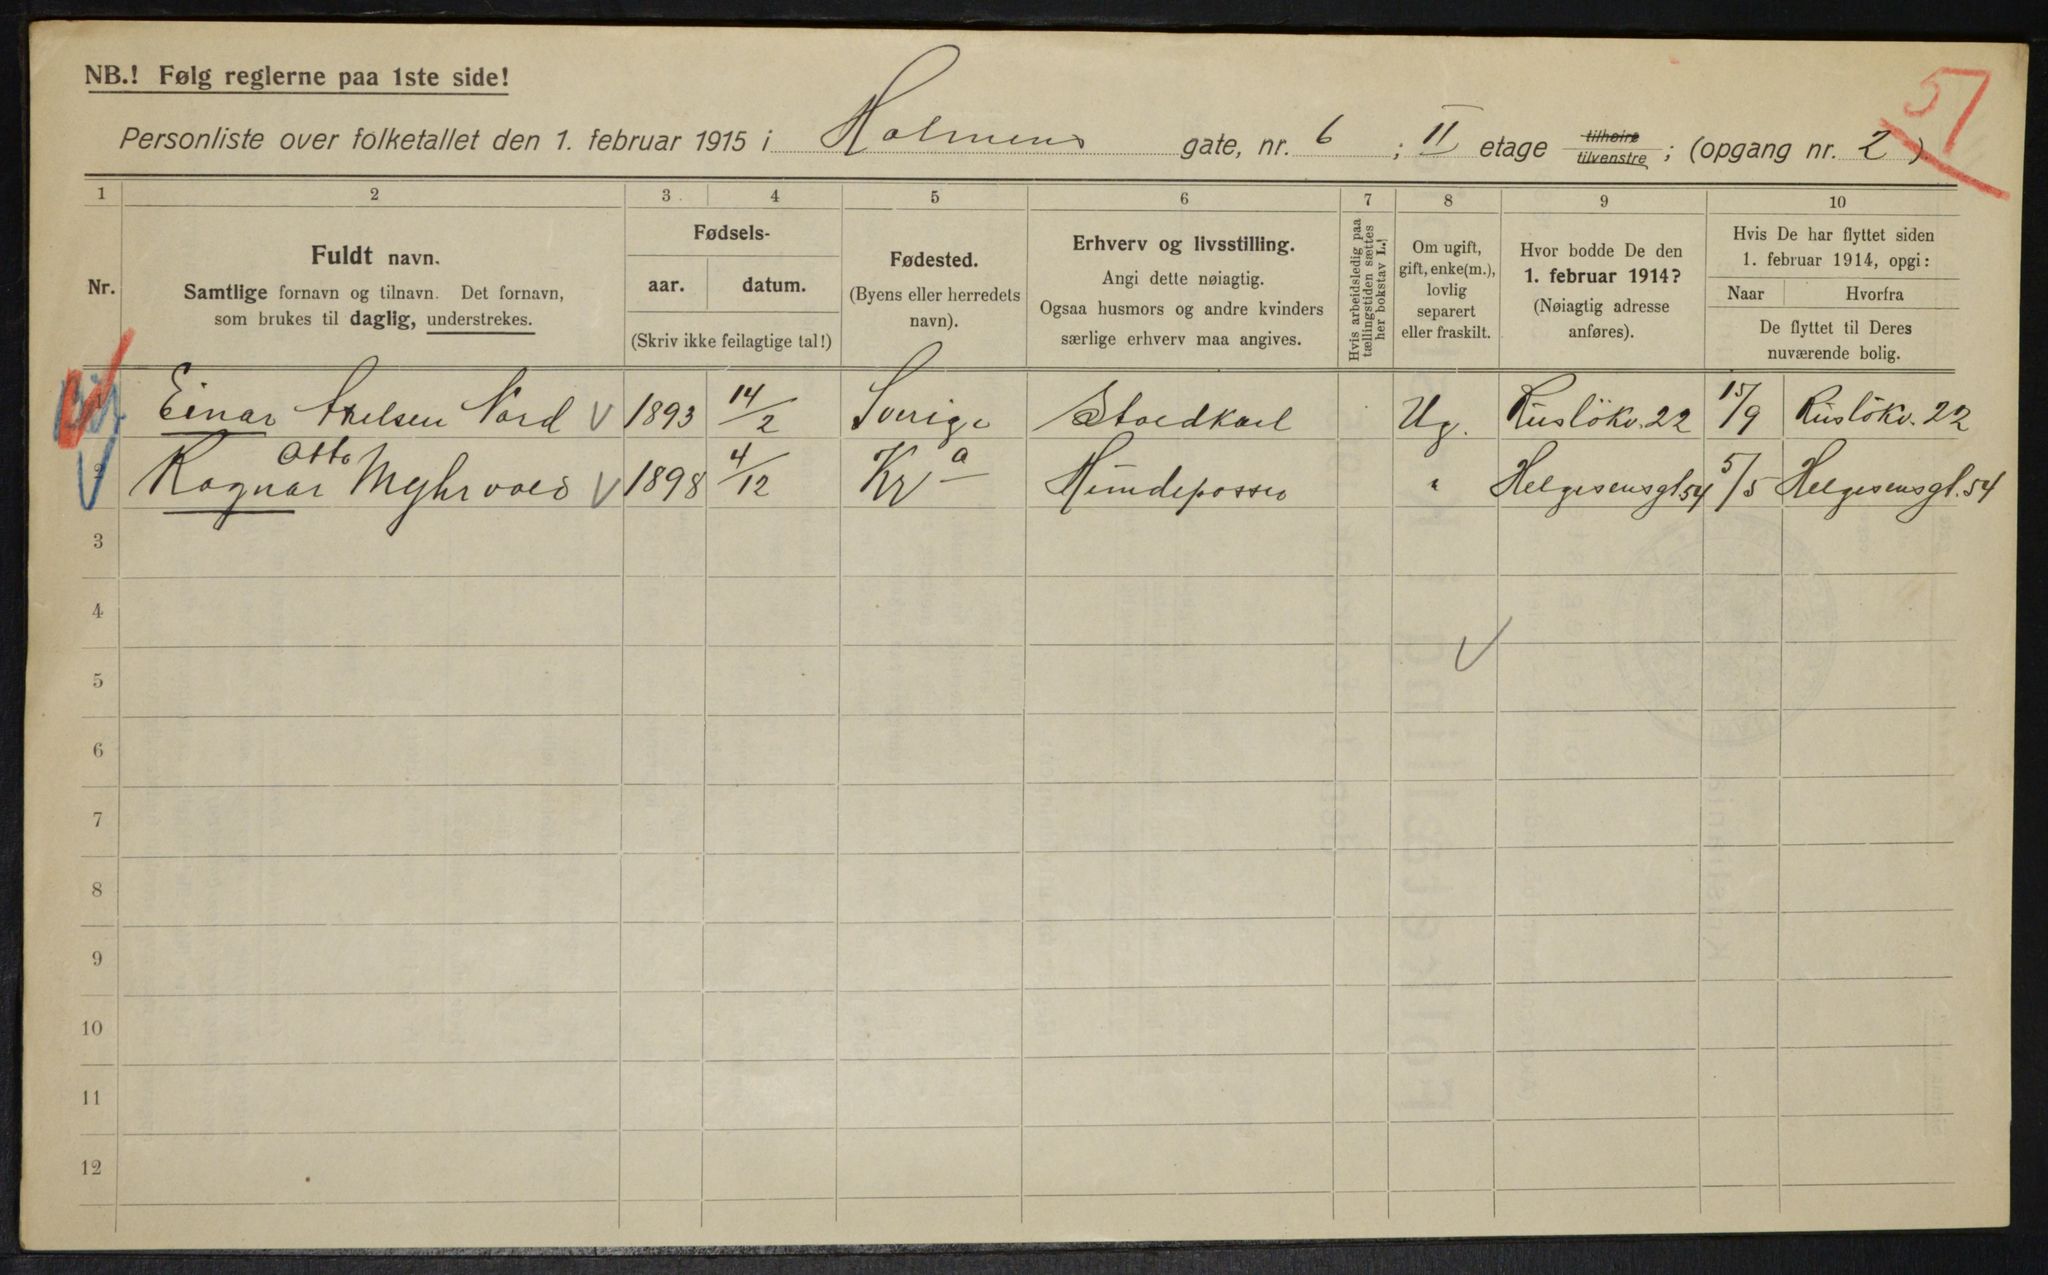 57
NB.! Følg reglerne paa 1ste side!
Personliste over folketallet den 1. februar 1915 i Holmens gate, nr. 6 ; II etage tilhøire tilvenstre ; (opgang nr. 2 )
1 2 3 4 5 6 7 8 9 10
Nr.
Fuldt navn.
Samtlige fornavn og tilnavn. Det fornavn,
som brukes til daglig, understrekes.
Fødsels-
aar. datum.
(Skriv ikke feilagtige tal!)
Fødested.
(Byens eller herredets
navn).
Erhverv og livsstilling.
Angi dette nøiagtig.
Ogsaa husmors og andre kvinders
særlige erhverv maa angives.
Hvis arbeidsledig paa
tællingstiden sættes
her bokstav L.!
Om ugift,
gift, enke(m.),
lovlig
separert
eller fraskilt.
Hvor bodde De den
1. februar 1914?
(Nøiagtig adresse
anføres).
Hvis De har flyttet siden
1. februar 1914, opgi:
Naar Hvorfra
De flyttet til Deres
nuværende bolig.
1 Einar Axelsen Nord 1893 14/2 Sverige Staldkarl Ug. Ruslökv. 22 15/9 Ruslökv. 22
2 Ragnar Otto Myhrvold 1898 4/12 Kra Hundepasser " Helgesensgt 54 5/5 Helgesensgt. 54
3
4
5
6
7
8
9
10
11
12